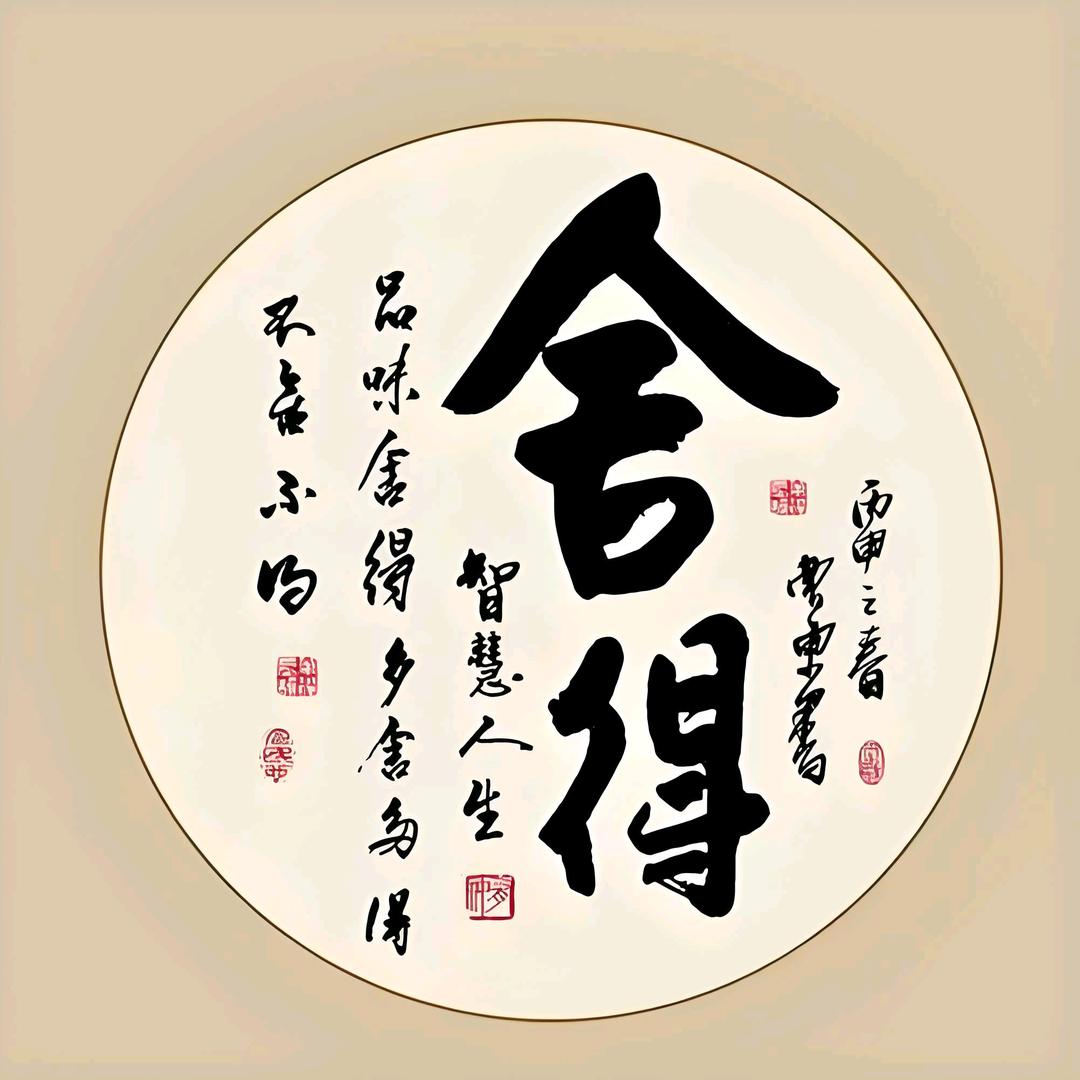 丙申之春
書
舍得
智慧人生
品味舍得多舍多得
不舍不得